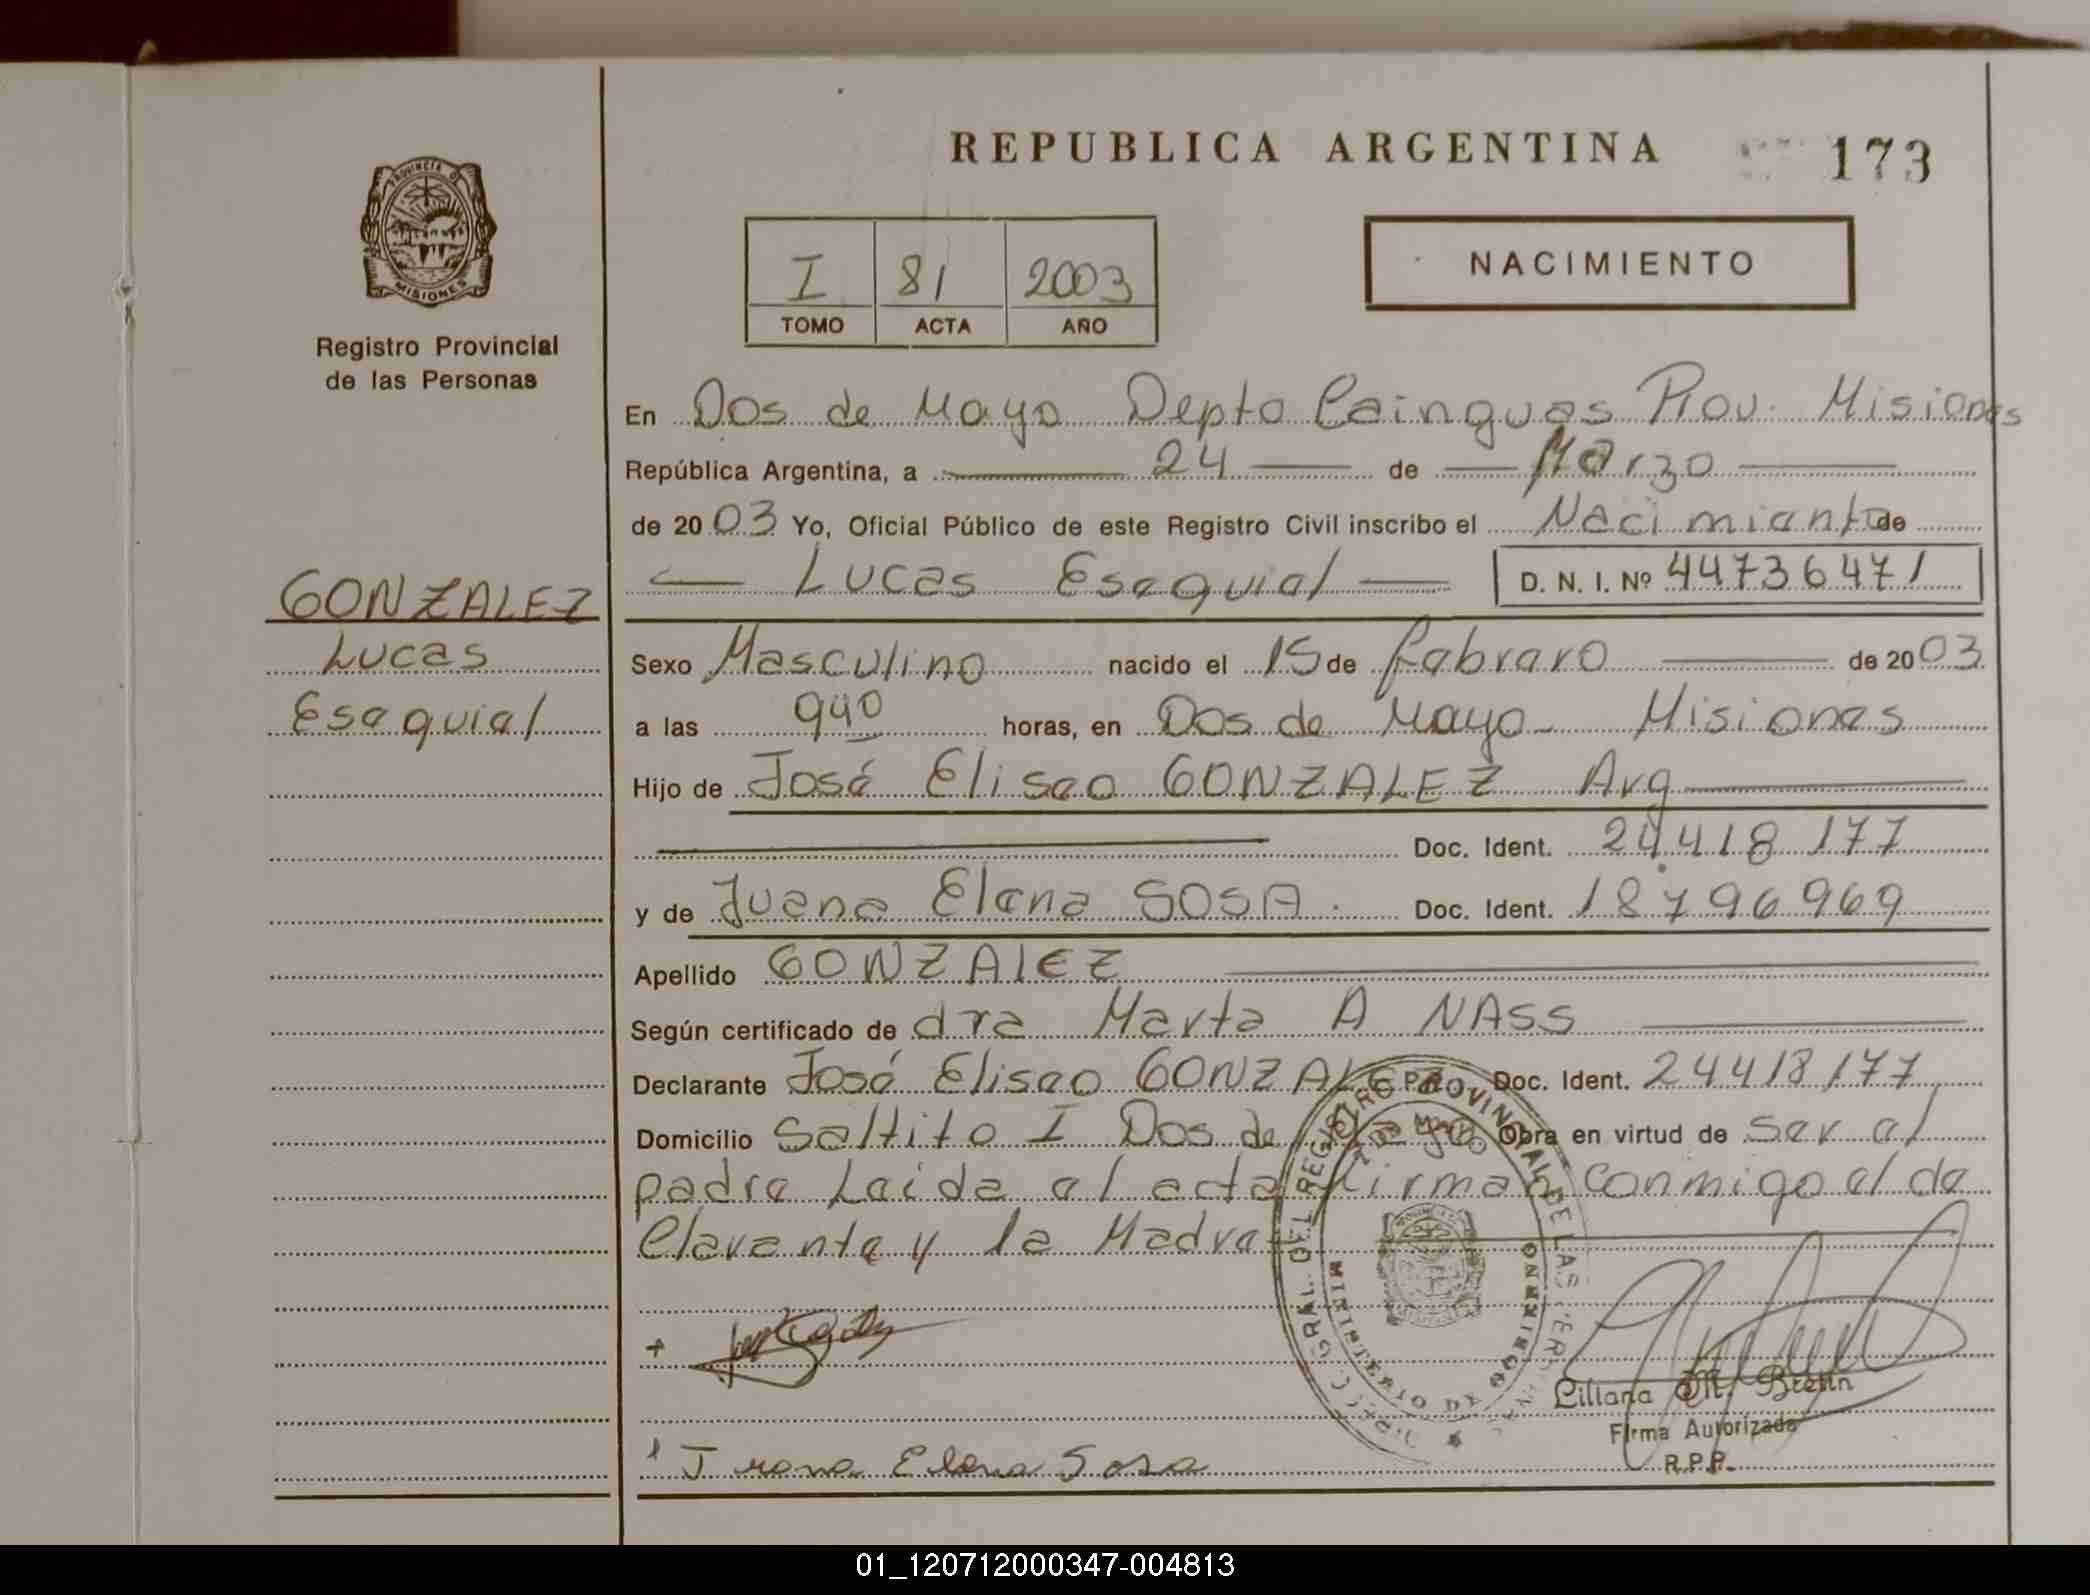 REPUBLICA ARGENTINA
173
PROVINCIA DE
MISIONES
Registro Provincial
de las Personas
I 81 2003
TOMO ACTA AÑO
NACIMIENTO
En Dos de Mayo Depto Cainguas Prov. Misiones
República Argentina, a 24 de Marzo
de 2003 Yo, Oficial Público de este Registro Civil inscribo el Nacimiento de
Lucas Esequiel D. N. I. Nº 44736471
GONZALEZ
Lucas
Esequiel
Sexo Masculino nacido el 15 de febrero de 2003
a las 940 horas, en Dos de Mayo - Misiones
Hijo de José Eliseo GONZALEZ Arg
Doc. Ident. 24.418 177
y de Juana Elena SOSA. Doc. Ident. 18796969
Apellido GONZALEZ
Según certificado de dra Marta A NASS
Declarante José Eliseo GONZALEZ Doc. Ident. 24418177
Domicilio Saltito I Dos de Mayo Obra en virtud de ser el
padre Leida el acta firman conmigo el de
clarante y la Madre
DEL REGISTRO PROVINCIAL DE LAS PERSONAS
MINISTERIO DE GOBIERNO
Juana Elena Sosa
Liliana M. Brenn
Firma Autorizada
R.P.P.
01_120712000347-004813